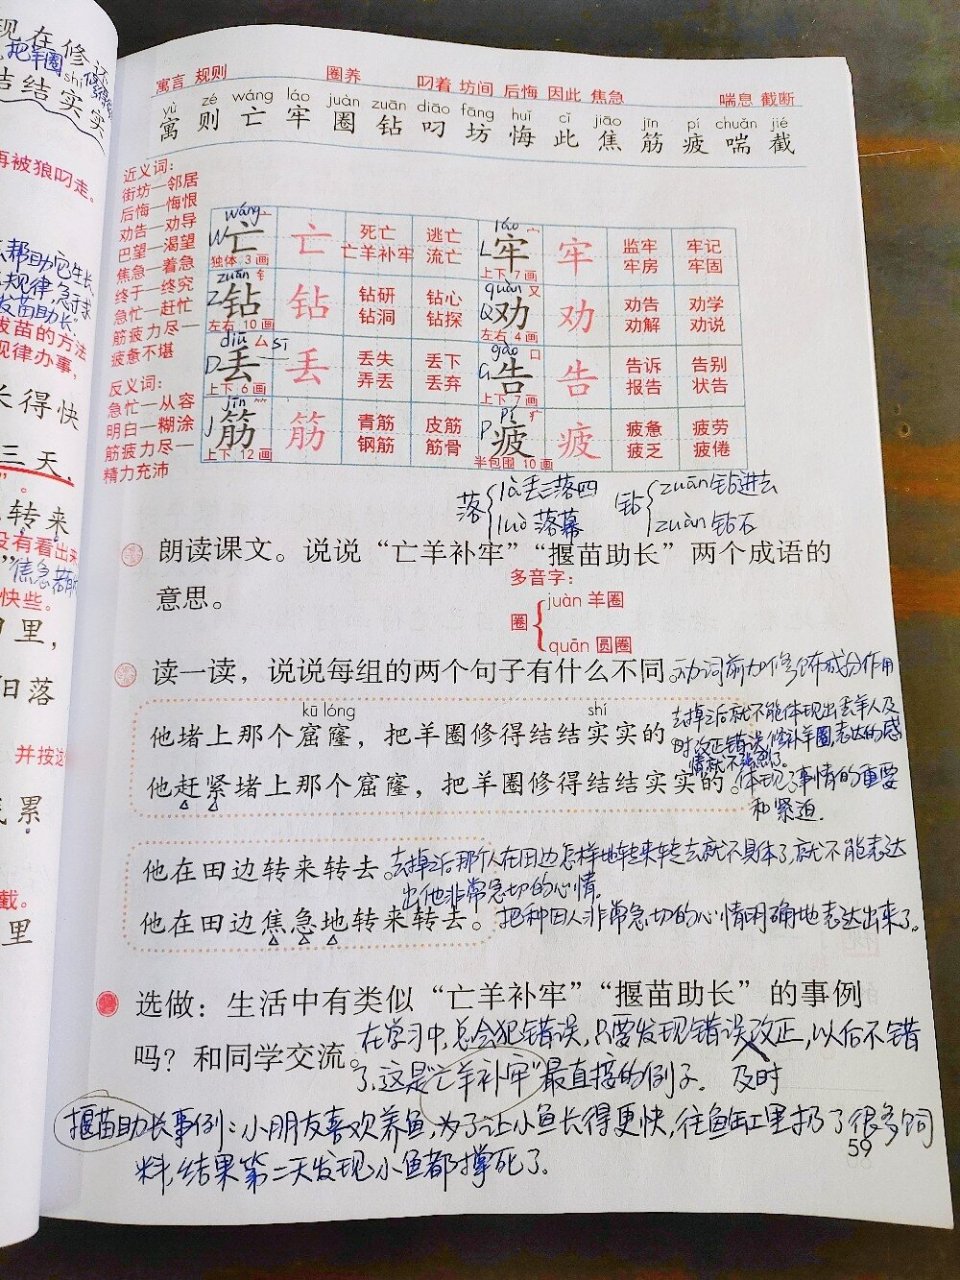 现在修还
把羊圈
shi
结结实实
再被狼叼走。
么帮助它生长
规律,急于求
拔苗助长"
拔苗的方法
规律办事,
长得快
三天,
转来
没有看出来
快些。
里,
阳落
并按这
累
截。
里
寓言 规则 圈养 叼着 坊间 后悔 因此 焦急 喘息 截断
yù zé wáng láo juàn zuān diāo fāng huǐ cǐ jiāo jīn pí chuǎn jié
寓 则 亡 牢 圈 钻 叼 坊 悔 此 焦 筋 疲 喘 截
近义词:
街坊—邻居
后悔—悔恨
劝告—劝导
巴望—渴望
焦急—着急
终于—终究
急忙—赶忙
筋疲力尽—
疲惫不堪
反义词:
急忙—从容
明白—糊涂
筋疲力尽—
精力充沛
wáng láo
W 亡 亡 死亡 逃亡 L 牢 牢 监牢 牢记
亡羊补牢 流亡 牢房 牢固
独体 3画 上下 7画
zuān quàn 又
Z 钻 钻 钻研 钻心 Q 劝 劝 劝告 劝学
钻洞 钻探 劝解 劝说
左右 10画 左右 4画
diū 厶 sī gào 口
D 丢 丢 丢失 丢下 G 告 告 告诉 告别
弄丢 丢弃 报告 状告
上下 6画 上下 7画
jīn pí
J 筋 筋 青筋 皮筋 P 疲 疲 疲惫 疲劳
钢筋 筋骨 疲乏 疲倦
上下 12画 半包围 10画
落 là 丢三落四 钻 zuān 钻进去
luò 落幕 zuàn 钻石
朗读课文。说说“亡羊补牢”“揠苗助长”两个成语的
意思。
多音字:
圈 juàn 羊圈
quān 圆圈
读一读,说说每组的两个句子有什么不同。动词前加修饰成分作用
kū lóng shí
他堵上那个窟窿,把羊圈修得结结实实的
去掉之后就不能体现出丢羊人及
时改正错误,修补羊圈,表达的感
情就不强烈了。
他赶紧堵上那个窟窿,把羊圈修得结结实实的。体现了事情的重要
和紧迫.
他在田边转来转去。去掉之后那个人在田边怎样地转来转去就不具体了,就不能表达
出他非常急切的心情。
他在田边焦急地转来转去。把种田人非常急切的心情明确地表达出来了。
选做:生活中有类似“亡羊补牢”“揠苗助长”的事例
吗?和同学交流。在学习中,总会犯错误,只要发现错误改正,以后不错
了,这是"亡羊补牢"最直接的例子. 及时
揠苗助长事例:小朋友喜欢养鱼,为了让小鱼长得更快,往鱼缸里扔了很多饲
料,结果第二天发现小鱼都撑死了.
59